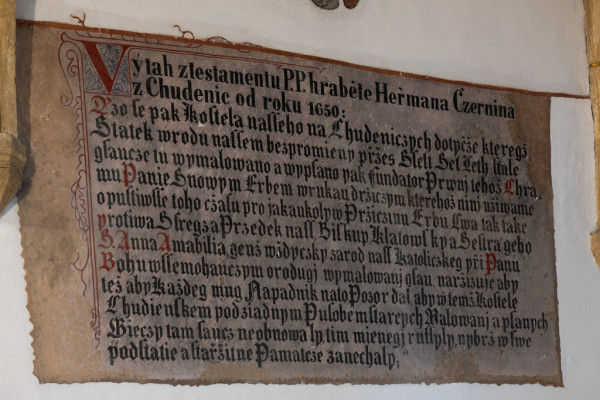 Výtah z testamentu P.P. hraběte Heřmana Czernina
z Chudenic od roku 1650:
Czo se pak kostela nasseho na Chudeniczych dotyče kteregž
Statek w rodu nassem bezpromieny přzes Ssest Set Leth stale
gsaucze tu wymalowano a wypsano yak fundator Prwní tehož Chra
mu Panie s Nowym Erbem w rukau držiczym kterehož niní užiwame
opustiwsse toho cžasu pro jakaukolyw Pržiczinu Erbu Lwa tak take
protiwa Sstregza Przedek nass Biskup Klatowsky a Sestra geho
S. Anna Amabilia, genž wždyczky za rod nass Katoliczkeg při Panu
Bohu wssemohauczym orodugj wymalowanj gsau, naržizuge aby
též aby každeg mug Napadnik na to Pozor dal, aby w temž Kostele
Chudienskem pod žiadnym Pusobem starych Malowanj a psanych
Wieczy tam saucz ne obnowaly, tim mieneg j russyly, nybrž w swe
podstatie a staržitne Pamatcze zanechaly;"